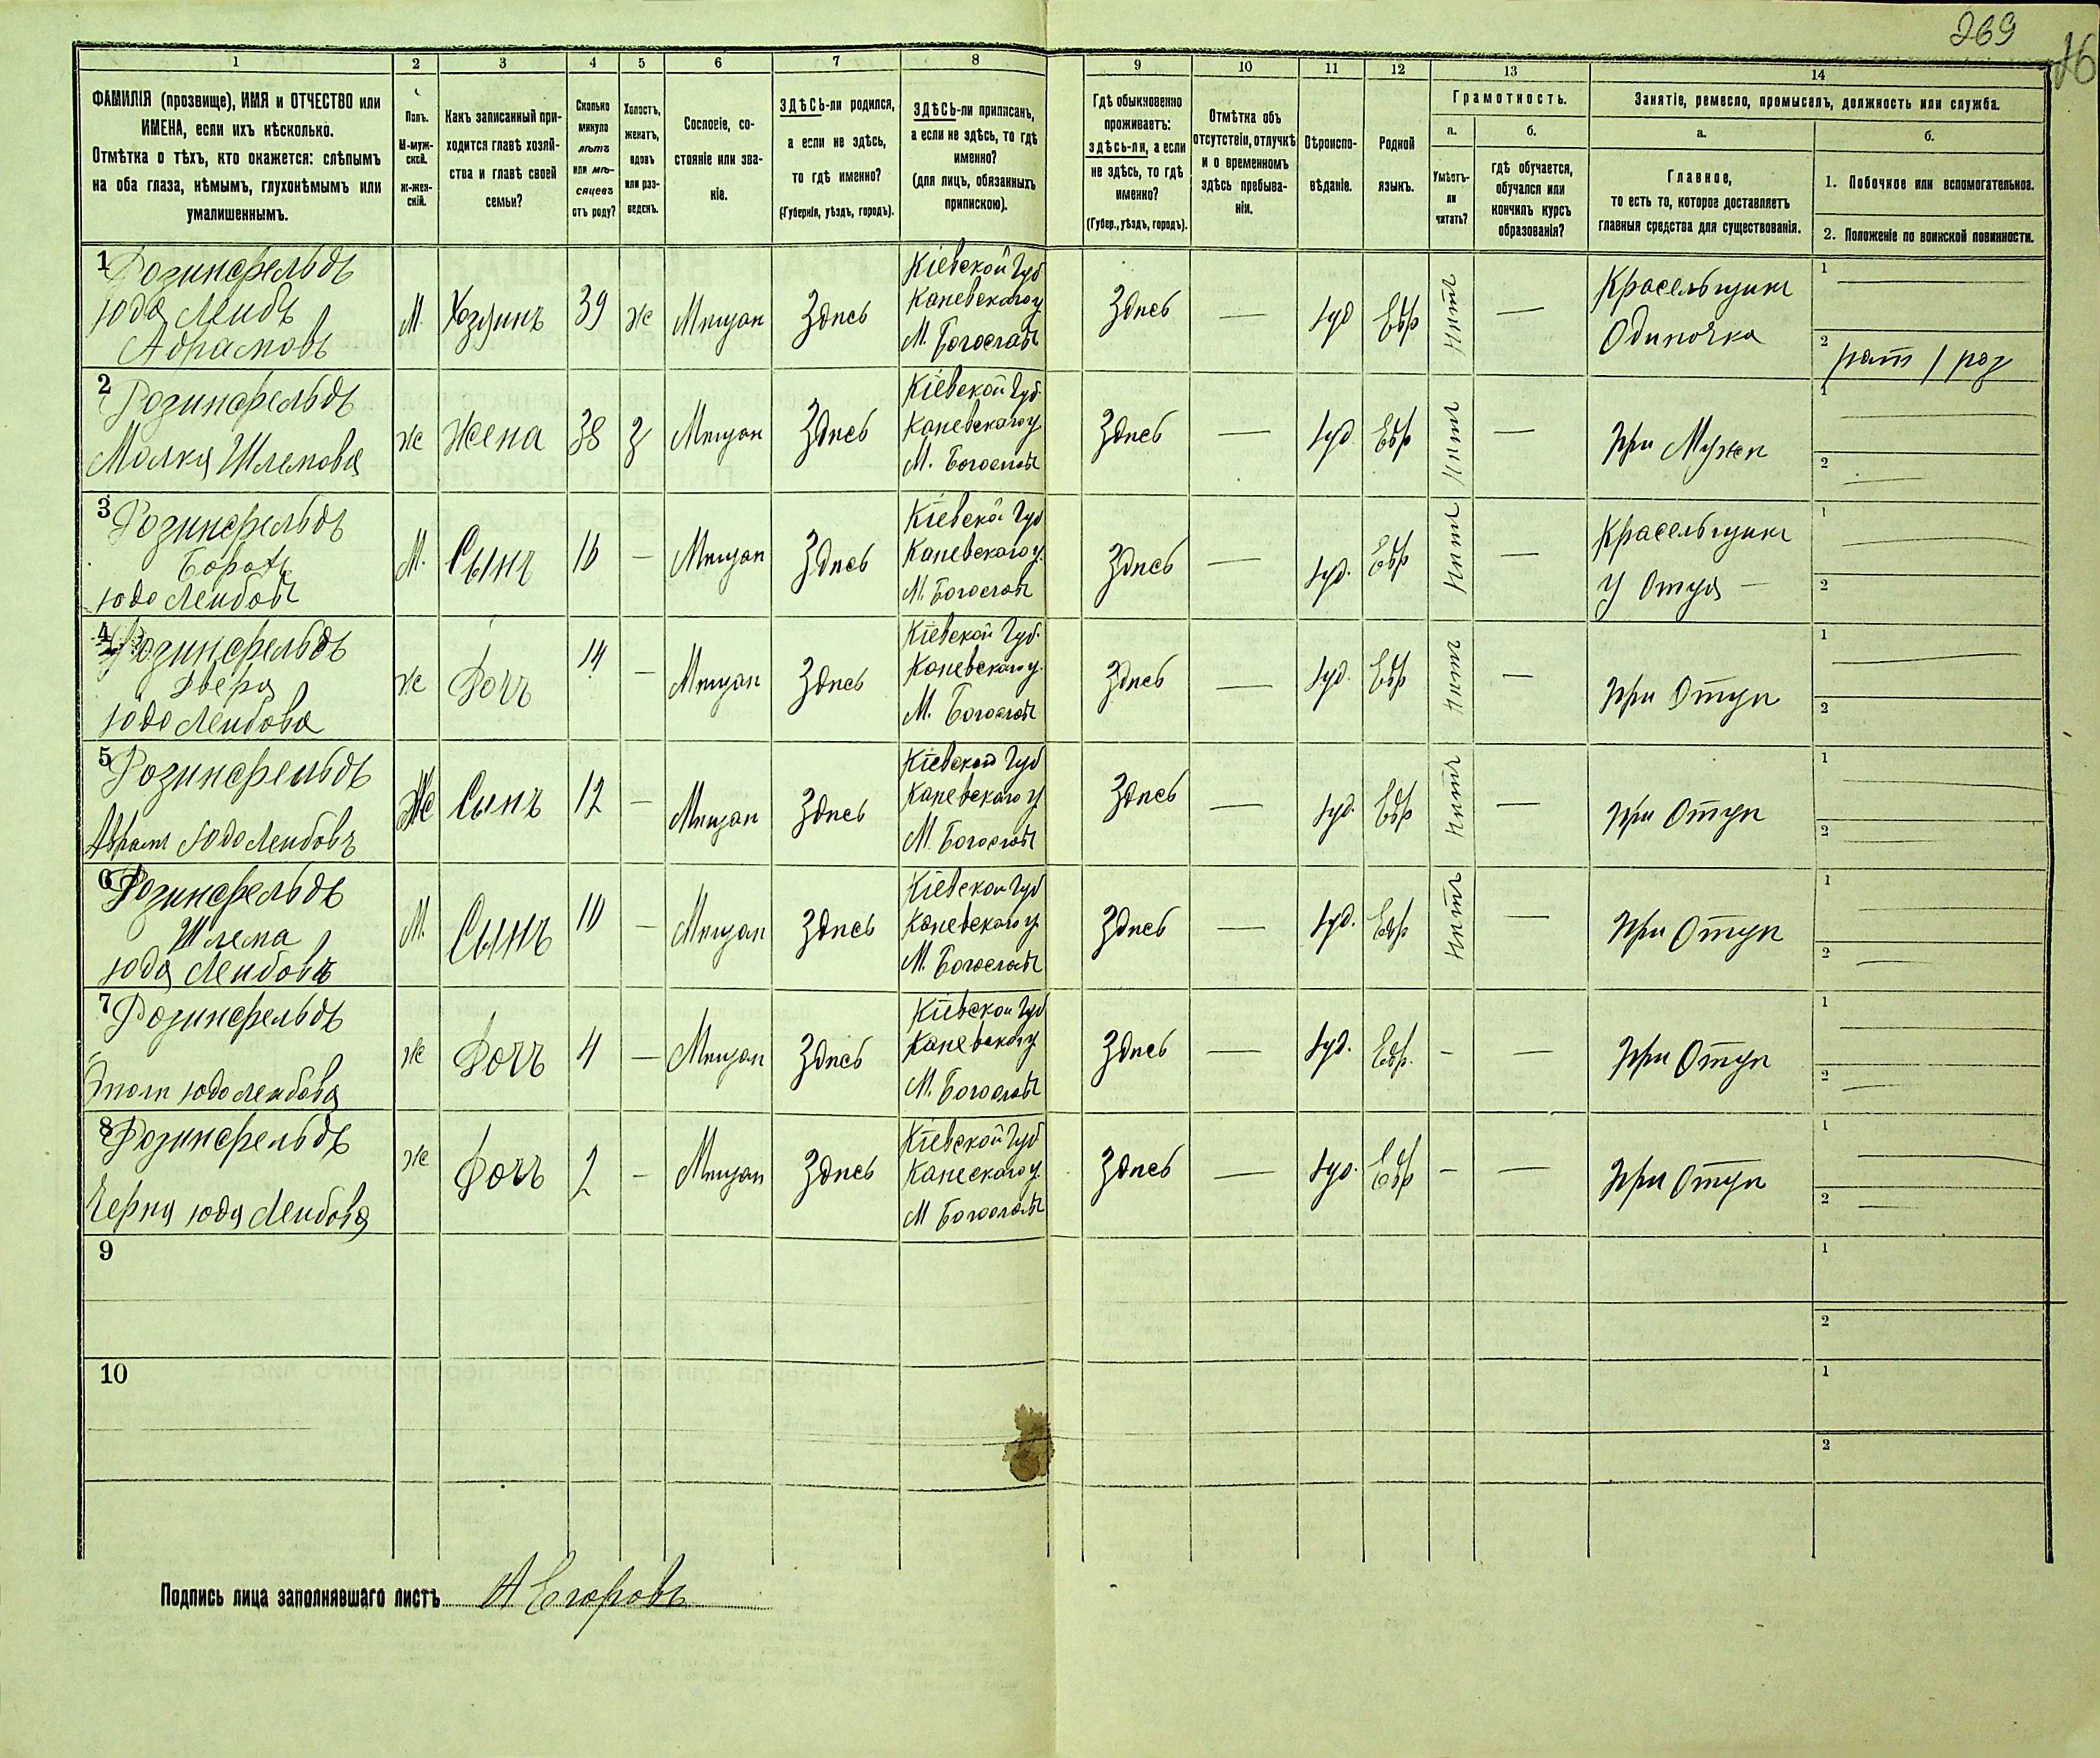 269
16
1
2
3
4
5
6
7
8
9
10
11
12
13
14
ФАМИЛІЯ (прозвище), ИМЯ и ОТЧЕСТВО или
ИМЕНА, если ихъ нѣсколько.
Отмѣтка о тѣхъ, кто окажется: слѣпымъ
на оба глаза, нѣмымъ, глухонѣмымъ или
умалишеннымъ.
Полъ.
М-муж-
ской.
Ж-жен-
скій.
Какъ записанный при-
ходится главѣ хозяй-
ства и главѣ своей
семьи?
Сколько
минуло
лѣтъ
или мѣ-
сяцевъ
отъ роду?
Холостъ,
женатъ,
вдовъ
или раз-
веденъ.
Сословіе, со-
стояніе или зва-
ніе.
ЗДѢСЬ-ли родился,
а если не здѣсь,
то гдѣ именно?
(Губернія, уѣздъ, городъ).
ЗДѢСЬ-ли приписанъ,
а если не здѣсь, то гдѣ
именно?
(для лицъ, обязанныхъ
припискою).
Гдѣ обыкновенно
проживаетъ:
здѣсь-ли, а если
не здѣсь, то гдѣ
именно?
(Губер., уѣздъ, городъ).
Отмѣтка объ
отсутствіи, отлучкѣ
и о временномъ
здѣсь пребыва-
ніи.
Вѣроиспо-
вѣданіе.
Родной
языкъ.
Грамотность.
а.
Умѣетъ-
ли
читать?
б.
гдѣ обучается,
обучался или
кончилъ курсъ
образованія?
Занятіе, ремесло, промыселъ, должность или служба.
а.
Главное,
то есть то, которое доставляетъ
главныя средства для существованія.
б.
1. Побочное или вспомогательное.
2. Положеніе по воинской повинности.
1
Розинфельдъ
Юда Лейбъ
Абрамовъ
М.
Хозяинъ
39
ж
Мѣщан
Здѣсь
Кіевской Губ
Каневскаго у
М. Богослав
Здѣсь
—
Іуд
Евр
Нѣтъ
—
Красельщикъ
Одиночка
1
2
рат 1 раз
2
Розинфельдъ
Малка Шлемова
ж
Жена
38
З
Мѣщан
Здѣсь
Кіевской Губ.
Каневскаго у
М. Богослав
Здѣсь
—
Іуд
Евр
Нѣтъ
—
При Мужѣ
1
2
3
Розинфельдъ
Борохъ
Юдо Лейбов
М.
Сынъ
16
—
Мѣщан
Здѣсь
Кіевской Губ
Каневскаго у.
М. Богослав
Здѣсь
—
Іуд.
Евр
Нѣтъ
—
Красельщикъ
У Отца —
1
2
4
Розинфельдъ
Двера
Юдо Лейбова
ж
Дочь
14
—
Мѣщан
Здѣсь
Кіевской Губ.
Каневскаго у.
М. Богослав
Здѣсь
—
Іуд.
Евр
Нѣтъ
—
При Отцѣ
1
2
5
Розинфельдъ
Аврамъ Юдо Лейбовъ
Ж
Сынъ
12
—
Мѣщан
Здѣсь
Кіевской Губ
Каневскаго у
М. Богослав
Здѣсь
—
Іуд.
Евр
Нѣтъ
—
При Отцѣ
1
2
6
Розинфельдъ
Шлема
Юда Лейбовъ
М.
Сынъ
10
—
Мѣщан
Здѣсь
Кіевской Губ
Каневскаго у
М. Богослав
Здѣсь
—
Іуд.
Евр
Нѣтъ
—
При Отцѣ
1
2
7
Розинфельдъ
Юдо Лейбова
ж
Дочь
4
—
Мѣщан
Здѣсь
Кіевской Губ
Каневскаго у
М. Богослав
Здѣсь
—
Іуд.
Евр.
-
—
При Отцѣ
1
2
8
Розинфельдъ
Черна Юда Лейбова
ж
Дочь
2
—
Мѣщан
Здѣсь
Кіевской Губ
Канескаго у
М Богослав
Здѣсь
—
Іуд.
Евр
-
—
При Отцѣ
1
2
9
1
2
10
1
2
Подпись лица заполнявшаго листъ А Егоровъ